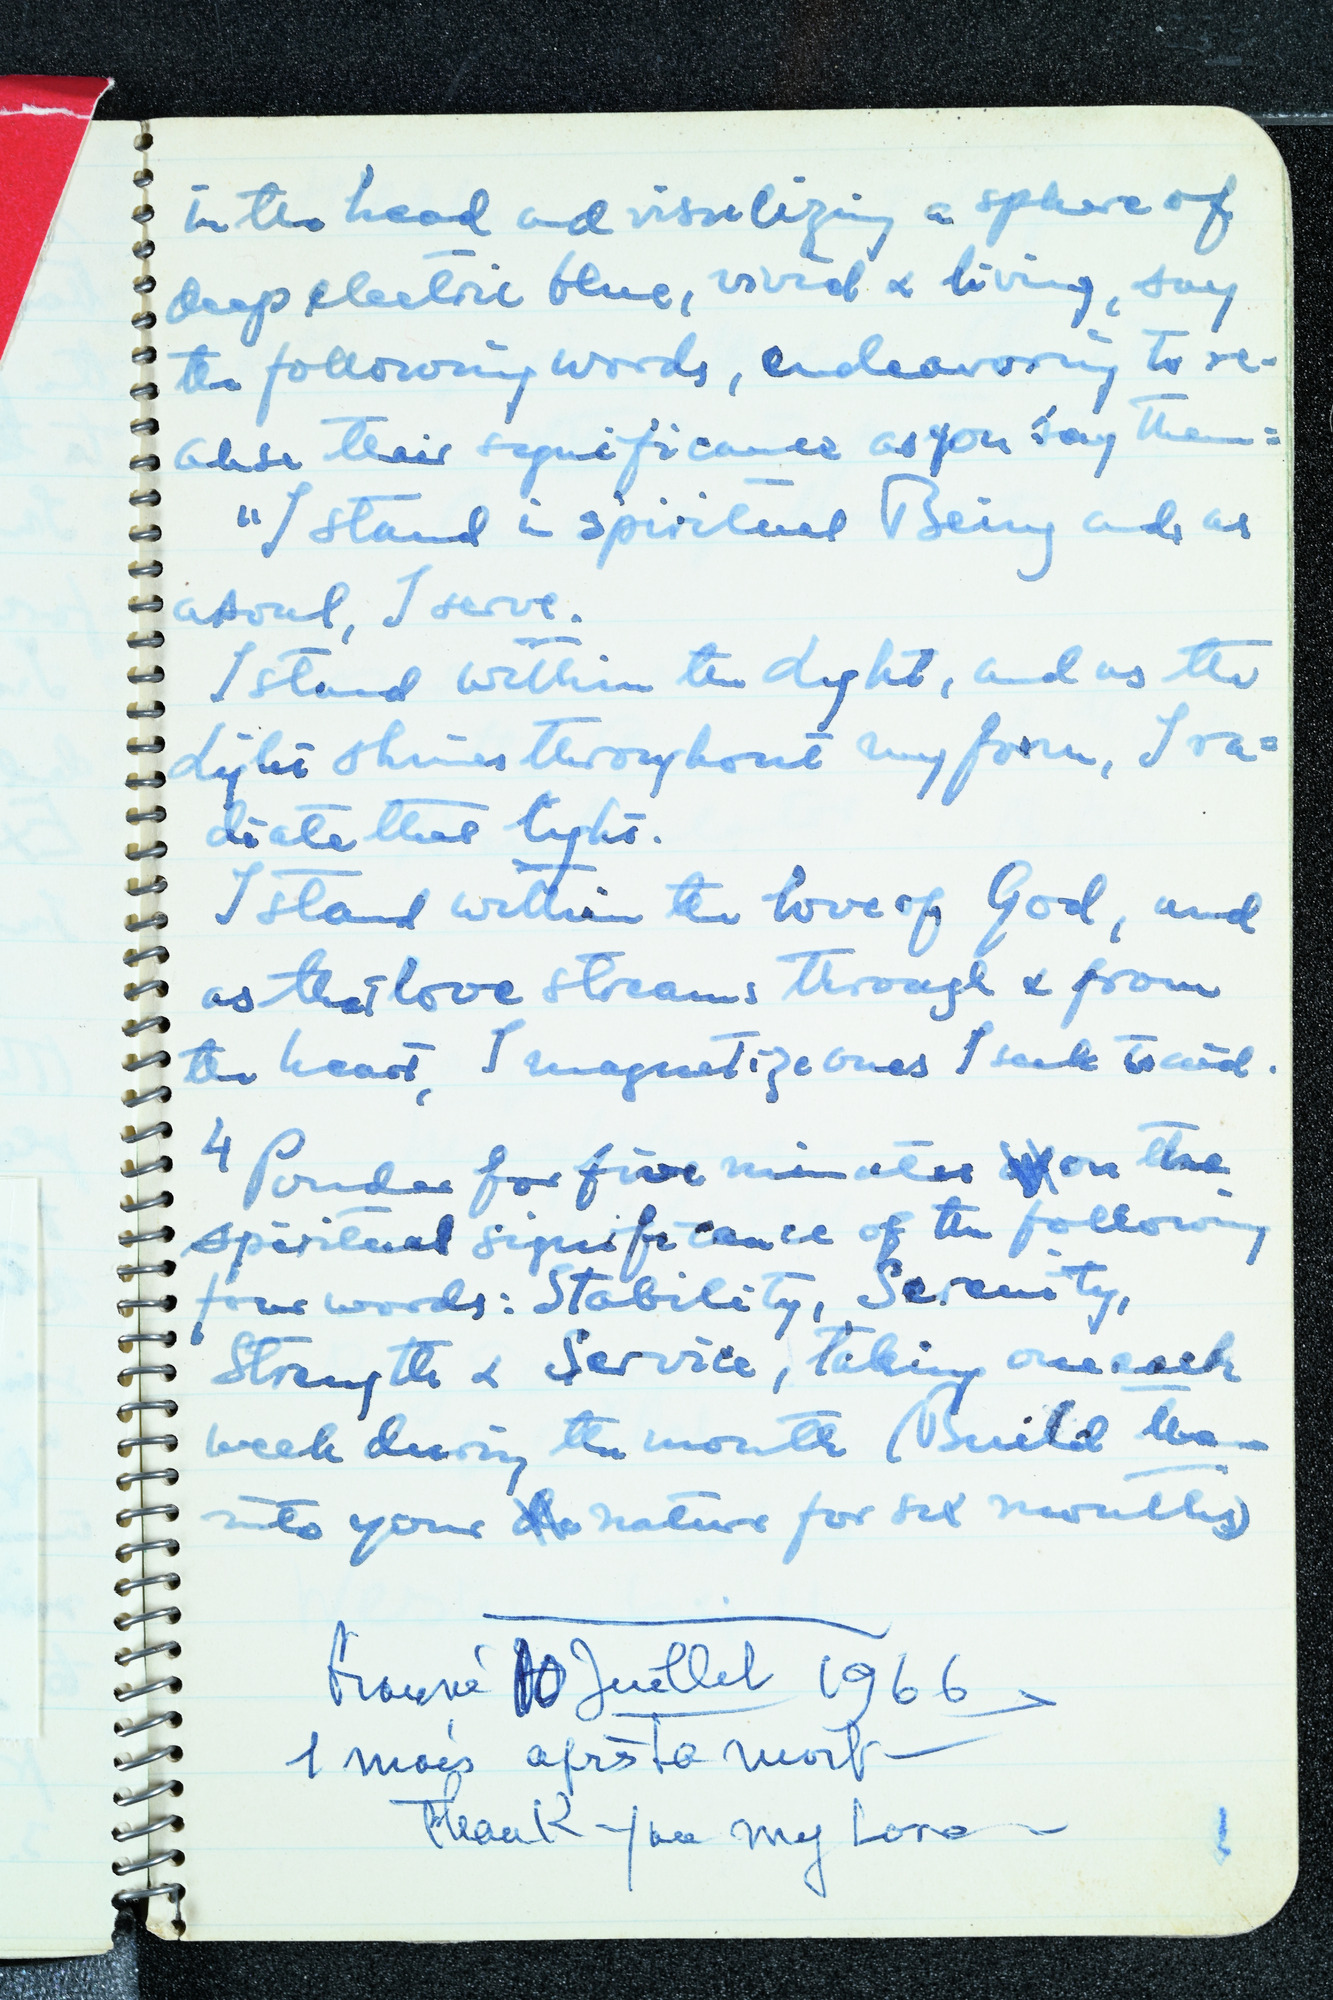 in the head and visualizing a sphere of
deep electric blue, vivid & living, say
the following words, endeavoring to re-
alise their significance as you say them=
"I stand in spiritual Being and as
a soul, I serve.
I stand within the Light, and as the
Light shines throughout my form, I ra=
diate that light.
I stand within the love of God, and
as that love streams through & from
the heart, I magnetize ones I seek to aid.
4 Ponder for five minutes on the
spiritual significance of the following
four words: Stability, Serenity,
Strength & Service, taking one each
week during the month (Build them
into your nature for six months)
trouvé 10 Juillet 1966
1 mois après ta mort
Thank you my Love